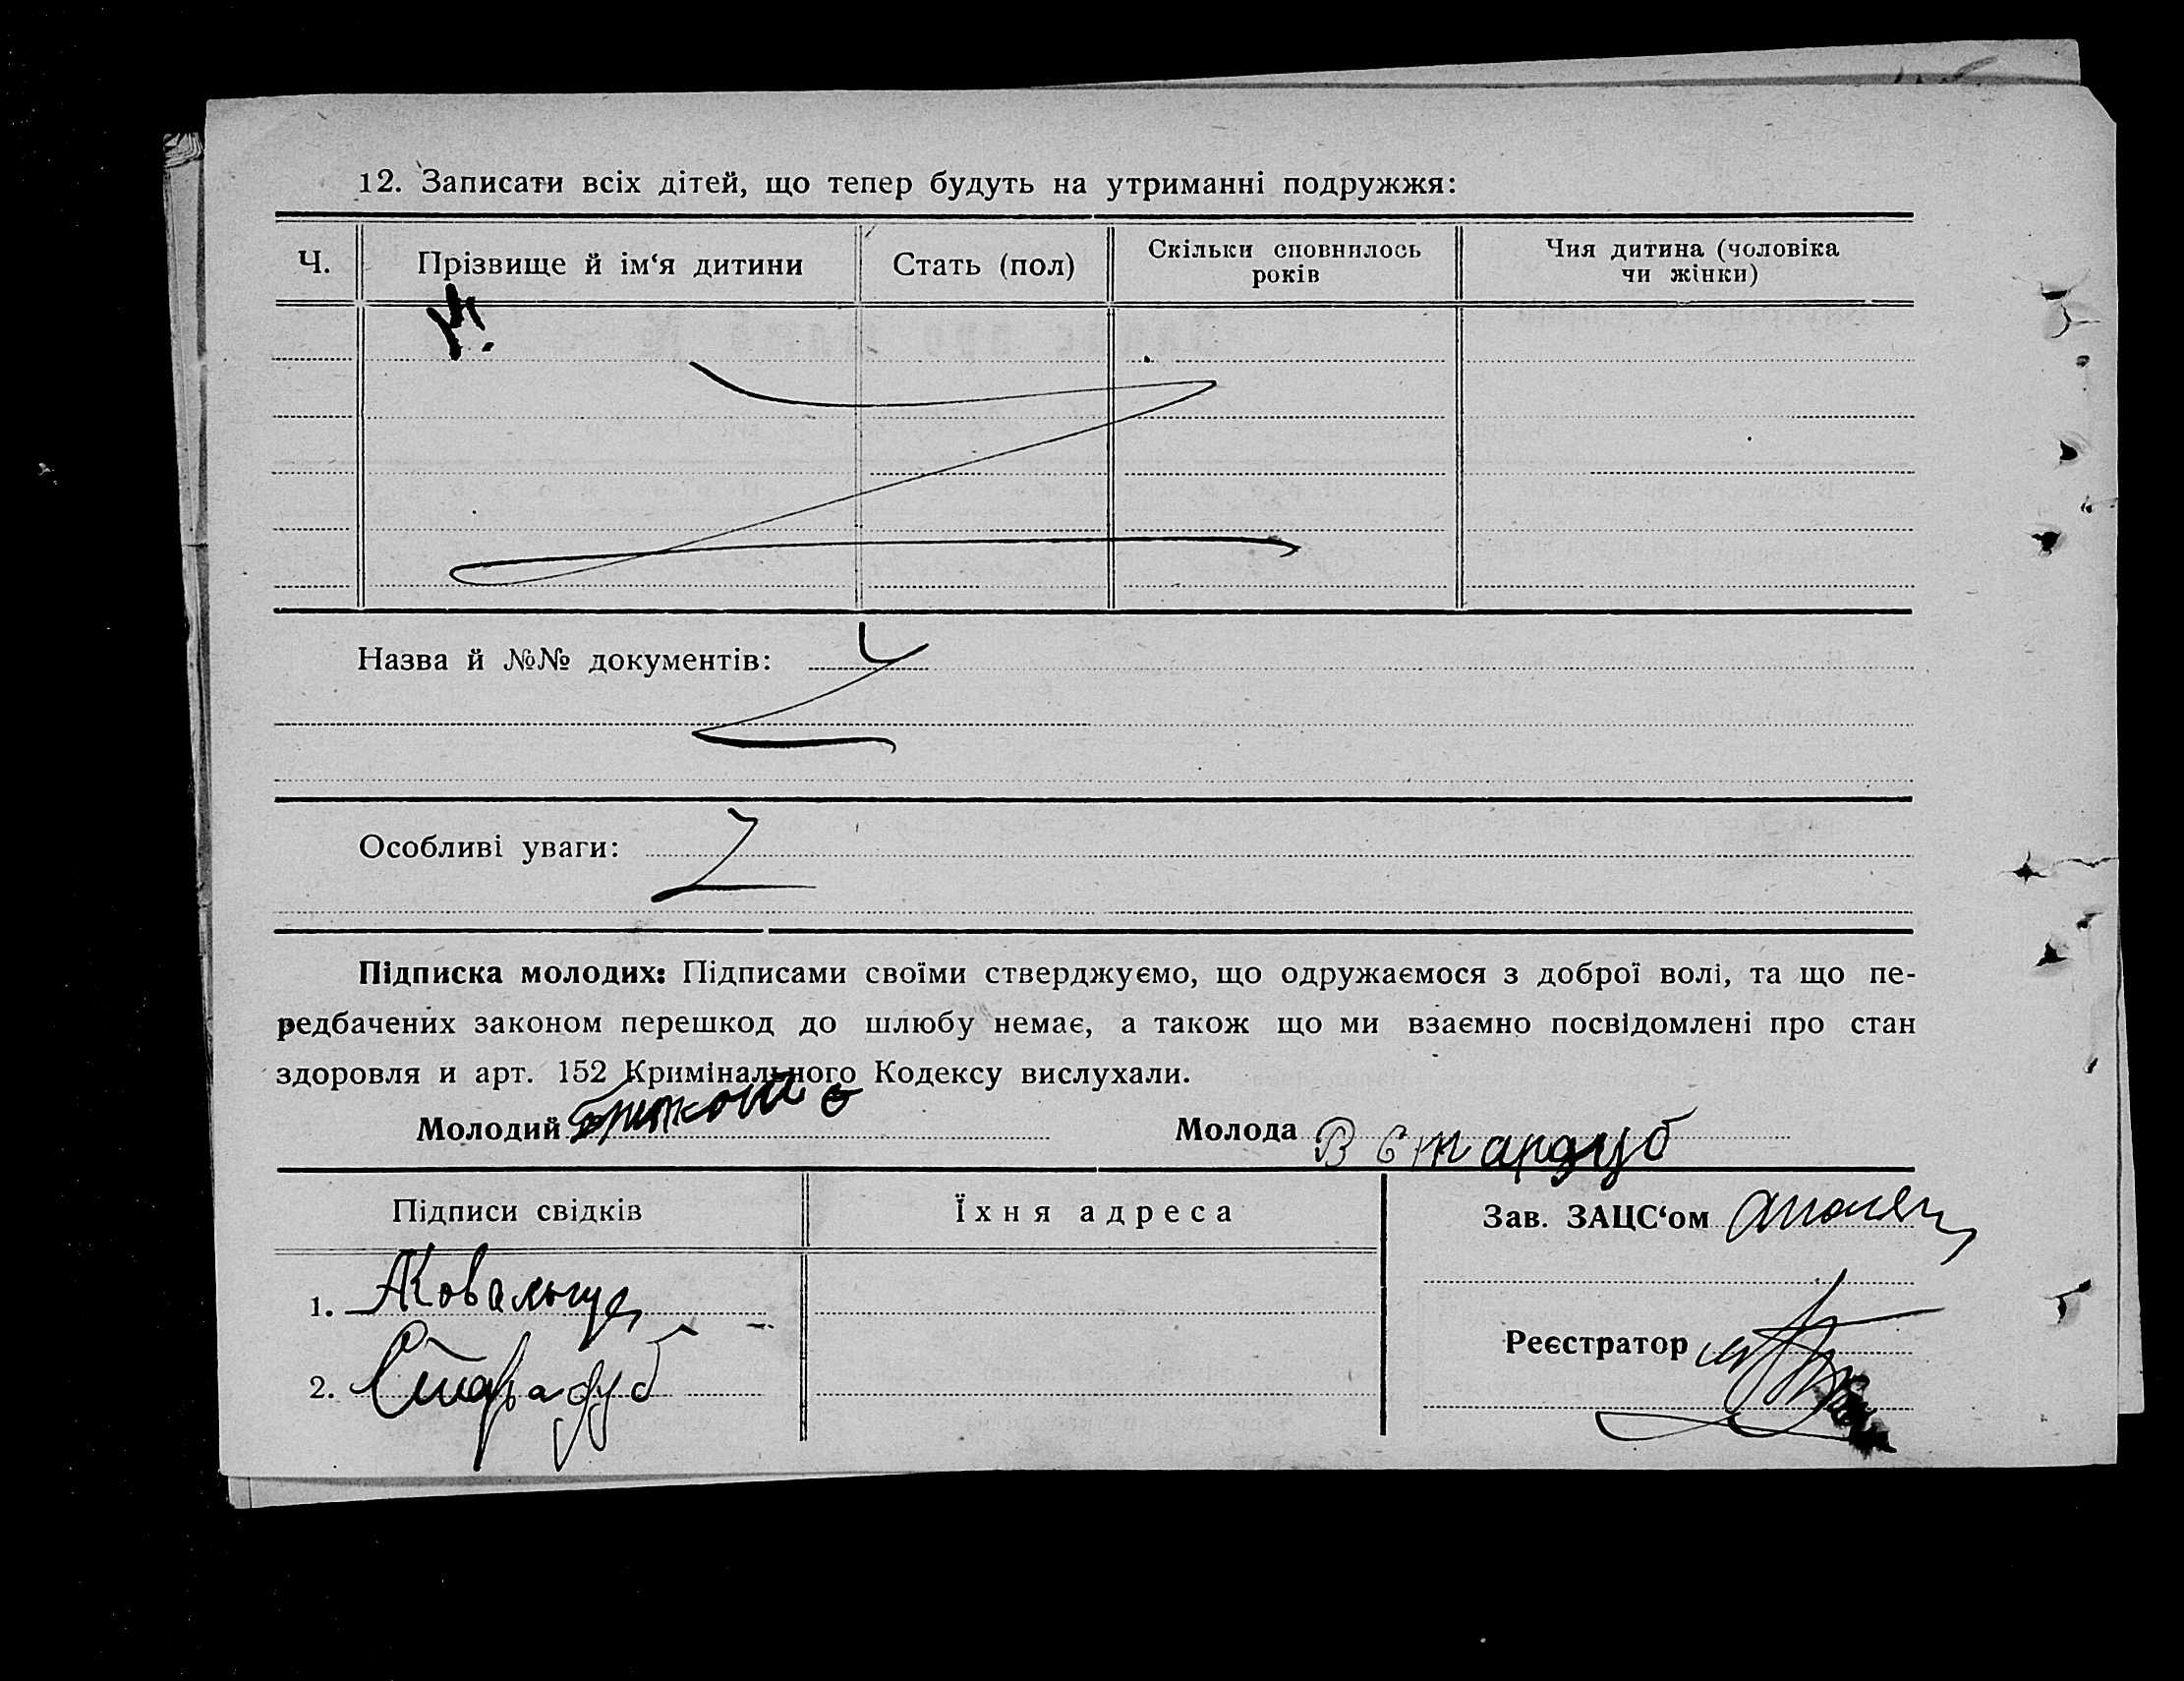 12. Записати всіх дітей, що тепер будуть на утриманні подружжя:
Ч.
Прізвище й ім‘я дитини
Стать (пол)
Скільки сповнилось
років
Чия дитина (чоловіка
чи жінки)
Назва й №№ документів:
Особливі уваги:
Підписка молодих: Підписами своїми стверджуємо, що одружаємося з доброї волі, та що пе-
редбачених законом перешкод до шлюбу немає, а також що ми взаємно посвідомлені про стан
здоровля и арт. 152 Кримінального Кодексу вислухали.
Молодий
Молода В Стардуб
Підписи свідків
Їхня адреса
Зав. ЗАЦС‘ом
1.
2. Старадуб
Реєстратор